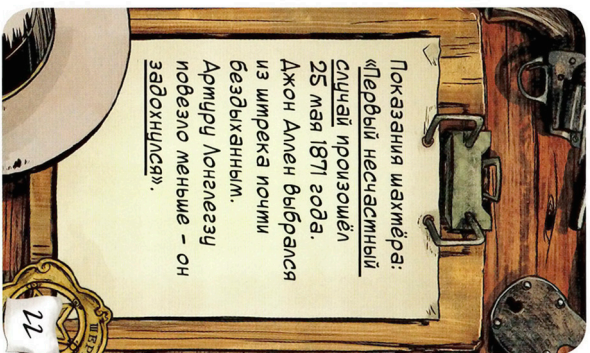 Показания шахтёра:
«Первый несчастный
случай произошёл
25 мая 1871 года.
Джон Аллен выбрался
из штрека почти
бездыханным.
Артуру Лонглегзу
повезло меньше – он
задохнулся».
22
ШЕР